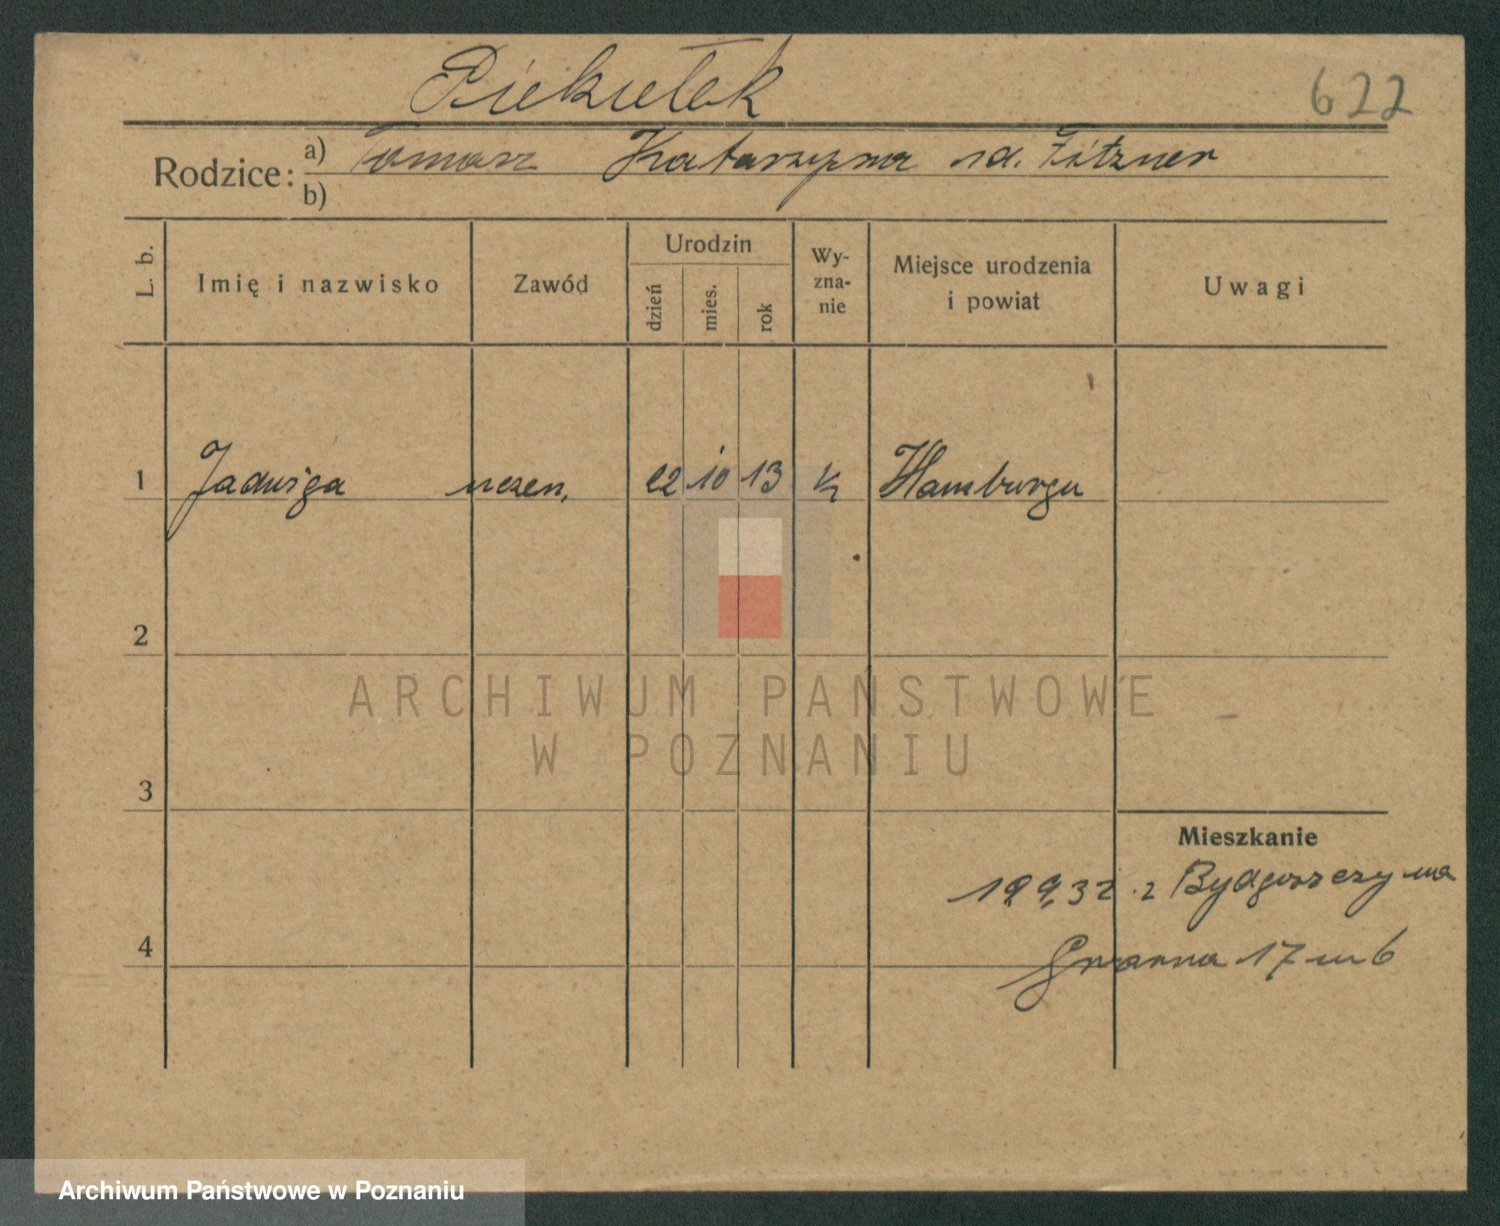 Piekiełek
622
Rodzice: a) Tomasz Katarzyna zd. Fitzner
b)
L. b.
Imię i nazwisko
Zawód
Urodzin
dzień
mies.
rok
Wy-
zna-
nie
Miejsce urodzenia
i powiat
Uwagi
1 Jadwiga uczen. 22 10 13 Hamburgu
2
ARCHIWUM PAŃSTWOWE
W POZNANIU
3
Mieszkanie
19.9.32 z Bydgoszczy na
4
17 m 6
Archiwum Państwowe w Poznaniu